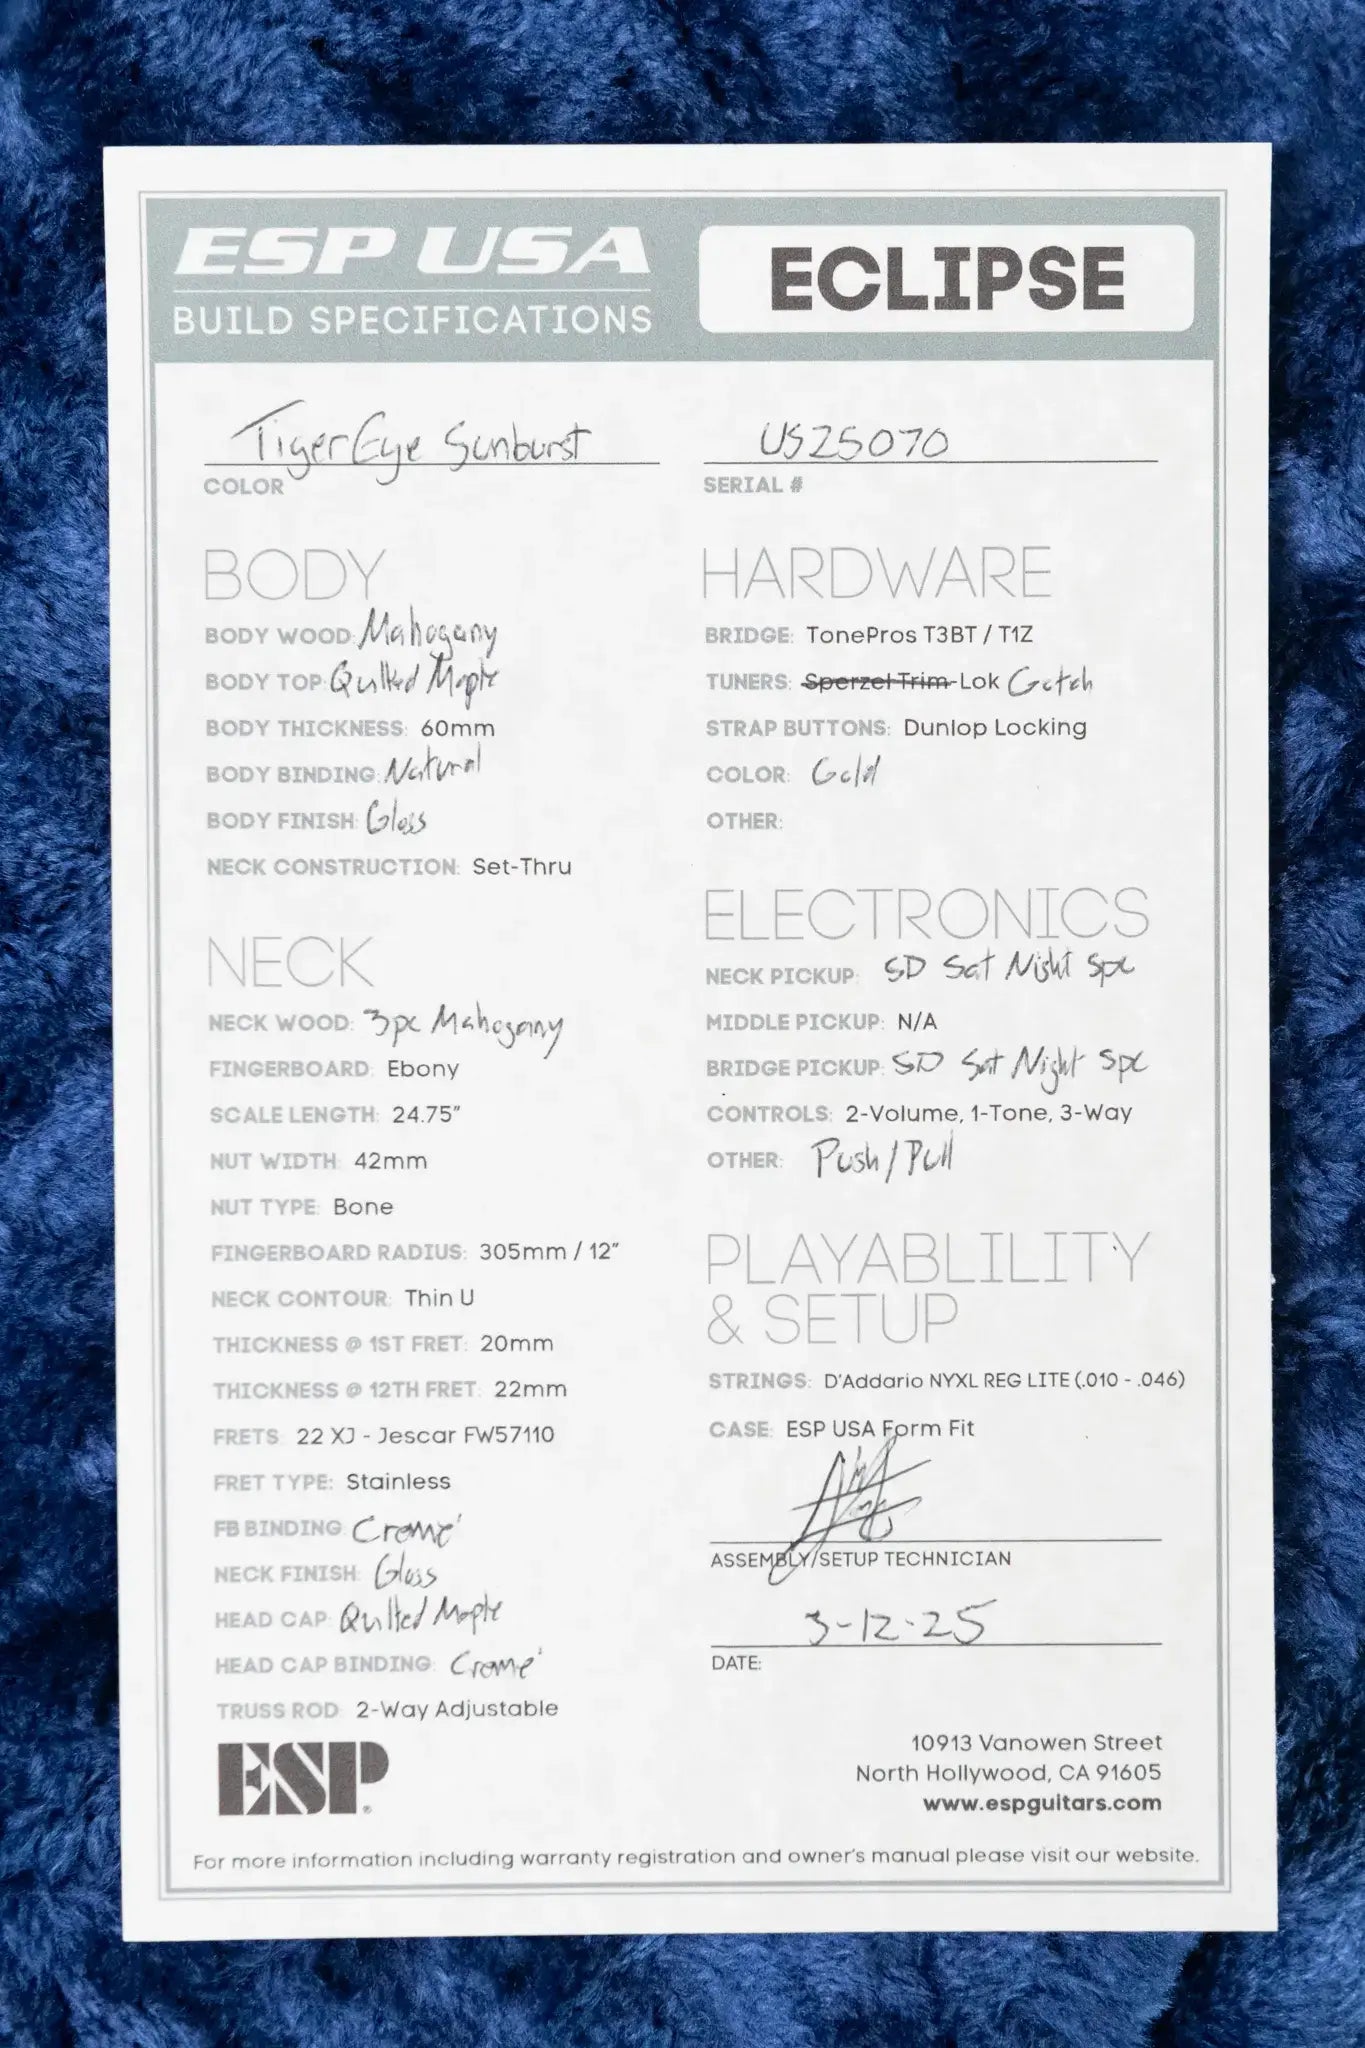 ESP USA
BUILD SPECIFICATIONS
ECLIPSE
TigerEye Sunburst
COLOR
US25070
SERIAL #
BODY
BODY WOOD: Mahogany
BODY TOP: Quilted Maple
BODY THICKNESS: 60mm
BODY BINDING: Natural
BODY FINISH: Gloss
NECK CONSTRUCTION: Set-Thru
NECK
NECK WOOD: 3pc Mahogany
FINGERBOARD: Ebony
SCALE LENGTH: 24.75"
NUT WIDTH: 42mm
NUT TYPE: Bone
FINGERBOARD RADIUS: 305mm / 12"
NECK CONTOUR: Thin U
THICKNESS @ 1ST FRET: 20mm
THICKNESS @ 12TH FRET: 22mm
FRETS: 22 XJ - Jescar FW57110
FRET TYPE: Stainless
FB BINDING: Cremé
NECK FINISH: Gloss
HEAD CAP: Quilted Maple
HEAD CAP BINDING: Cremé
TRUSS ROD: 2-Way Adjustable
HARDWARE
BRIDGE: TonePros T3BT / T1Z
TUNERS: Sperzel Trim-Lok Gotoh
STRAP BUTTONS: Dunlop Locking
COLOR: Gold
OTHER:
ELECTRONICS
NECK PICKUP: SD Sat Night Spc
MIDDLE PICKUP: N/A
BRIDGE PICKUP: SD Sat Night Spc
CONTROLS: 2-Volume, 1-Tone, 3-Way
OTHER: Push/Pull
PLAYABLILITY
& SETUP
STRINGS: D'Addario NYXL REG LITE (.010 - .046)
CASE: ESP USA Form Fit
ASSEMBLY/SETUP TECHNICIAN
3-12-25
DATE:
ESP®
10913 Vanowen Street
North Hollywood, CA 91605
www.espguitars.com
For more information including warranty registration and owner's manual please visit our website.